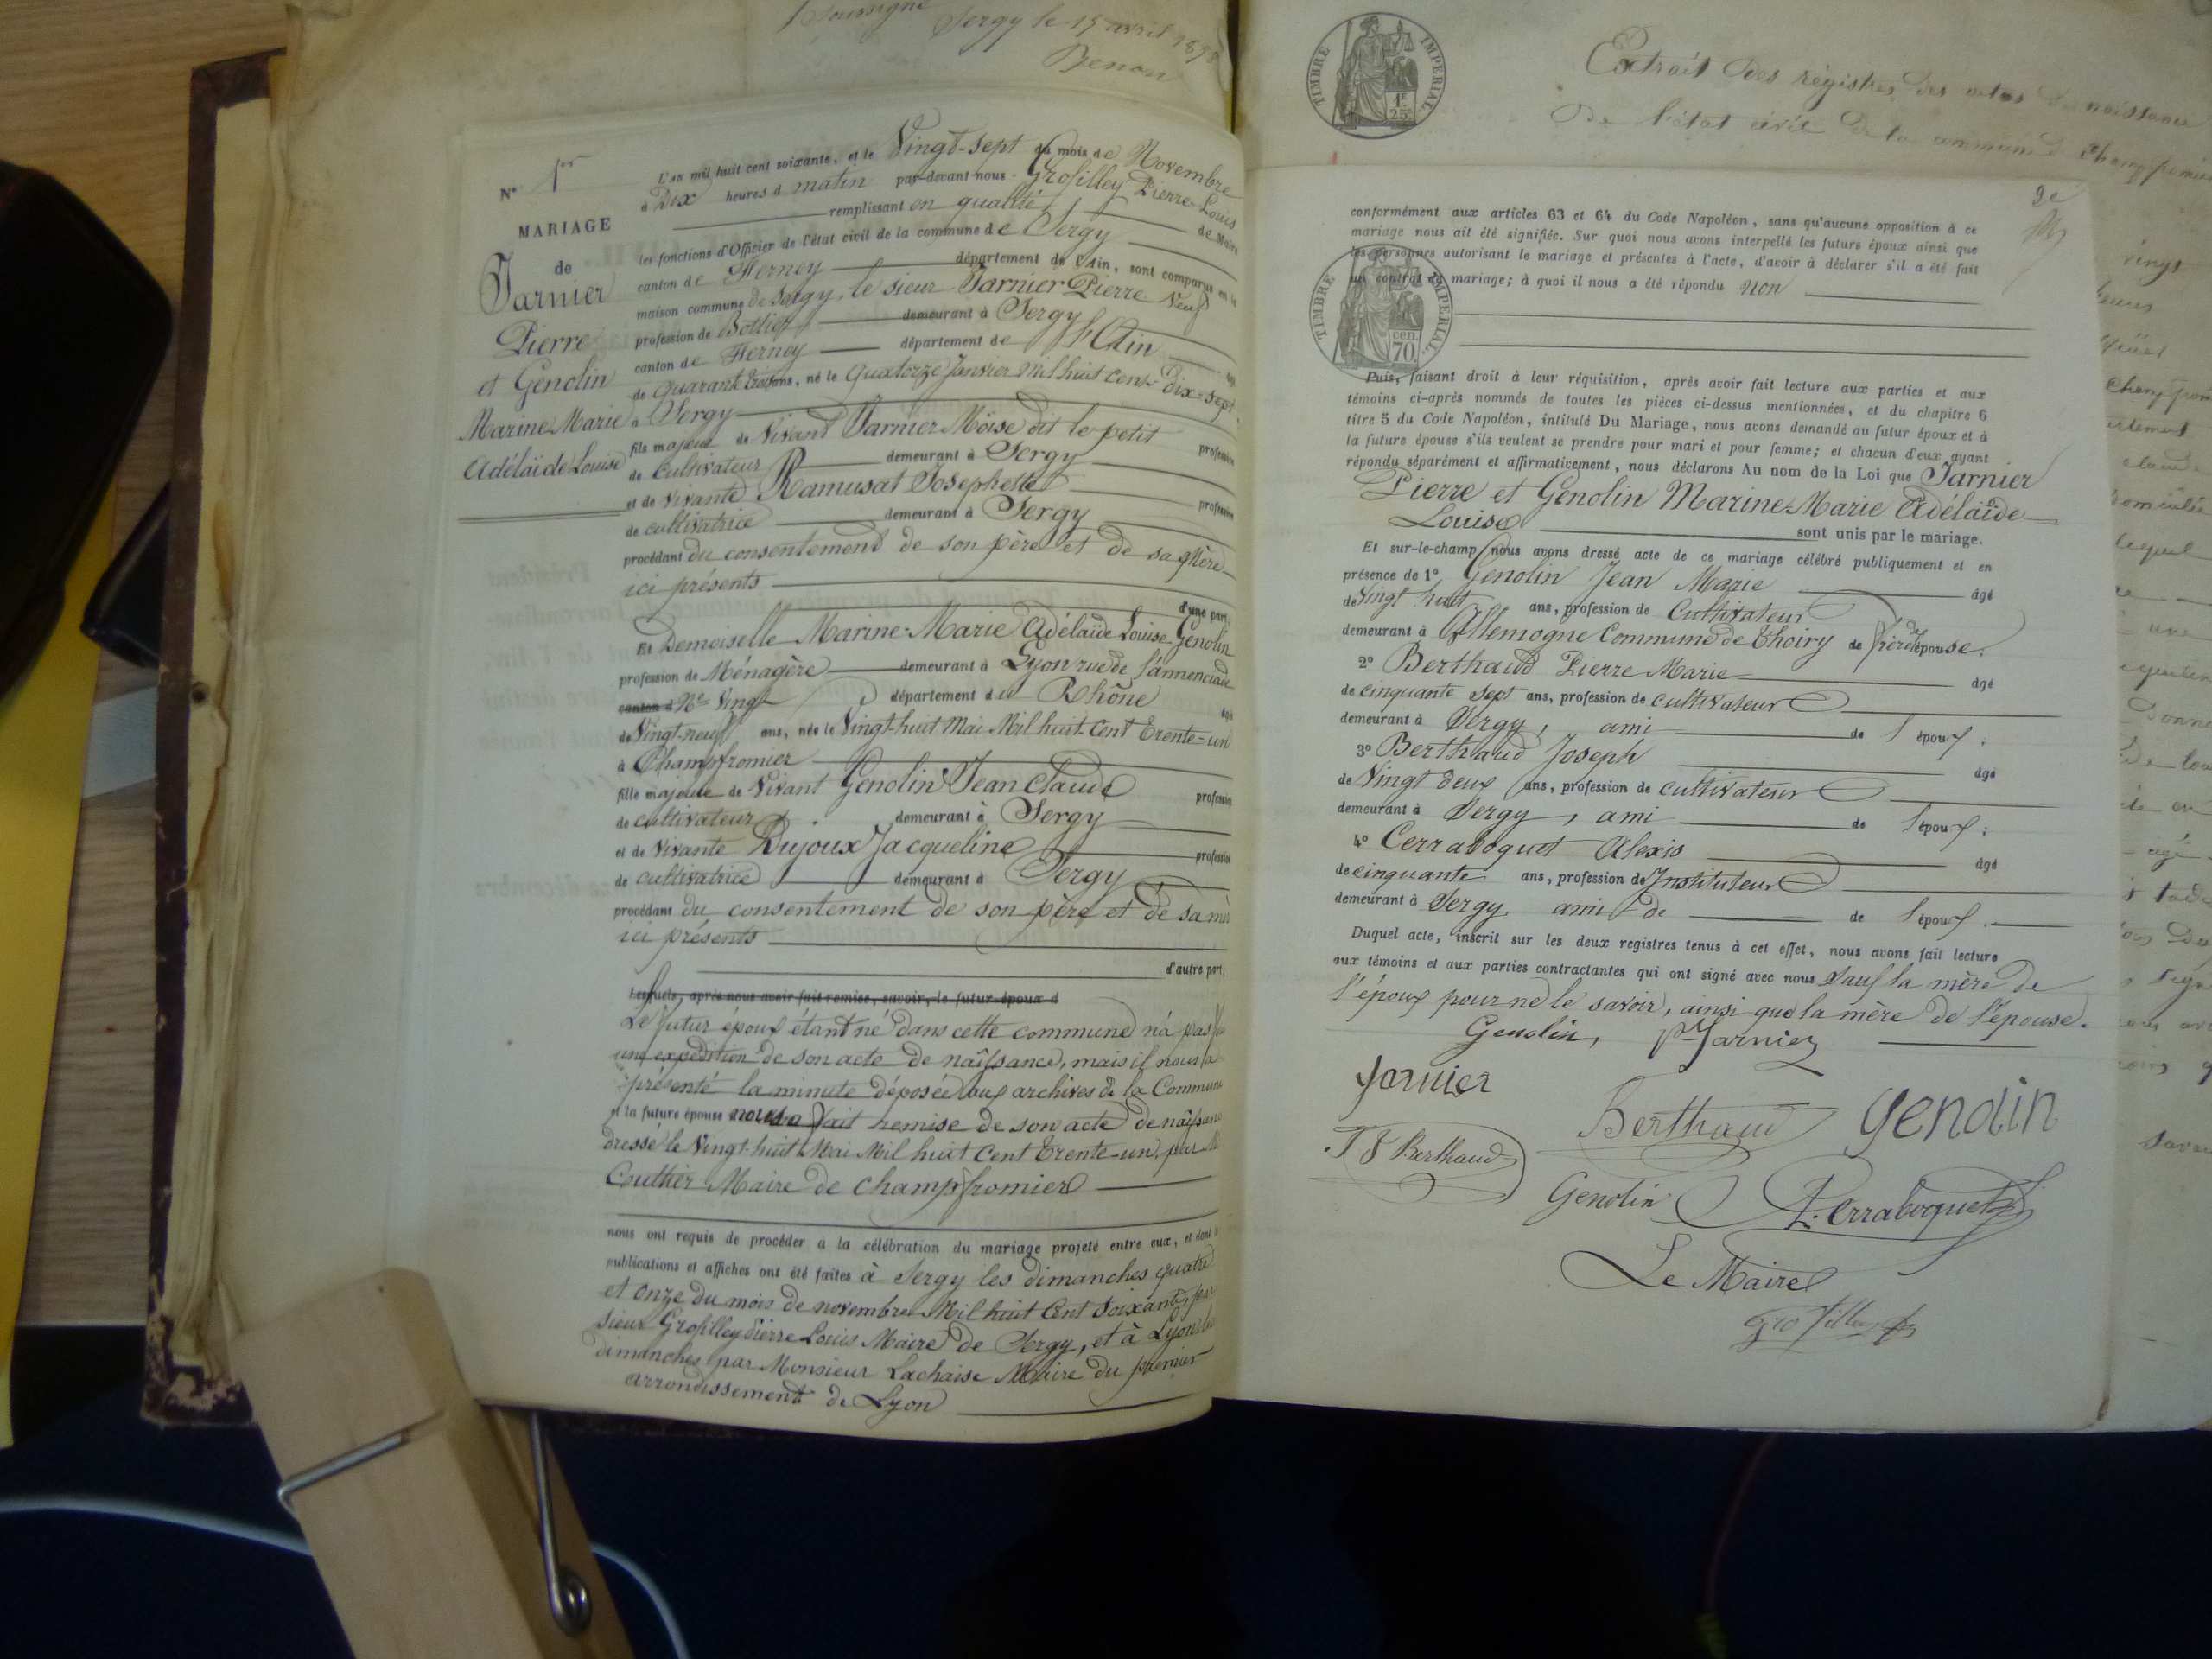 Soussigné Sergy le 15 avril
Benon
N° 1er
MARIAGE
de
Jarnier
Pierre
et Genolin
Marine-Marie
Adélaïde Louise
L'an mil huit cent soixante, et le Vingt-sept du mois de Novembre
à Dix heures d matin par-devant nous Grosfilley Pierre-Louis
remplissant en qualité de Maire
les fonctions d'Officier de l'état civil de la commune de Sergy
canton de Ferney département de l'Ain, sont comparus en la
maison commune de Sergy, le sieur Jarnier Pierre Veuf
profession de Bottier demeurant à Sergy
canton de Ferney département de l'Ain
de quarante trois ans, né le Quatorze Janvier Mil huit cent Dix-sept
à Sergy
fils majeur de Vivant Jarnier Moïse dit le petit profession
de cultivateur demeurant à Sergy
et de vivante Ramusat Josephette profession
de cultivatrice demeurant à Sergy
procédant du consentement de son père et de sa mère
ici présents
d'une part,
Et Demoiselle Marine-Marie Adélaïde Louise Genolin
profession de Ménagère demeurant à Lyon rue de l'annenciade
canton d N° Vingt département du Rhône âgée
de Vingt-neuf ans, née le Vingt-huit Mai Mil huit Cent Trente-un
à Champfromier
fille majeure de Vivant Genolin Jean Claude profession
de cultivateur demeurant à Sergy
et de vivante Dujoux Jacqueline profession
de cultivatrice demeurant à Sergy
procédant du consentement de son père et de sa mè
ici présents
d'autre part;
Lesquels, après nous avoir fait remise, savoir, le futur époux d
Le futur époux étant né dans cette commune n'a pas
une expédition de son acte de naissance, mais il nous a
présenté la minute déposée aux archives de la Commune
et la future épouse nous a fait remise de son acte de naissanc
dressé le Vingt-huit Mai Mil huit Cent Trente-un, par
Couttier Maire de champfromier
nous ont requis de procéder à la célébration du mariage projeté entre eux, et dont
publications et affiches ont été faites à Sergy les dimanches quatre
et onze du mois de novembre Mil huit Cent soixante, par
sieur Grosfilley Pierre Louis Maire de Sergy, et à Lyon les
dimanches par Monsieur Lachaise Maire du premier
arrondissement de Lyon
TIMBRE IMPERIAL
1F
25c
Extrait des régistres des actes de naissance
De l'état civil de la commune champfromier
2e
conformément aux articles 63 et 64 du Code Napoléon, sans qu'aucune opposition à ce
mariage nous ait été signifiée. Sur quoi nous avons interpellé les futurs époux ainsi que
les personnes autorisant le mariage et présentes à l'acte, d'avoir à déclarer s'il a été fait
un contrat de mariage; à quoi il nous a été répondu non
TIMBRE IMPERIAL
cen.
70.
Puis, faisant droit à leur réquisition, après avoir fait lecture aux parties et aux
témoins ci-après nommés de toutes les pièces ci-dessus mentionnées, et du chapitre 6
titre 5 du Code Napoléon, intitulé Du Mariage, nous avons demandé au futur époux et à
la future épouse s'ils veulent se prendre pour mari et pour femme; et chacun d'eux ayant
répondu séparément et affirmativement, nous déclarons Au nom de la Loi que Jarnier
Pierre et Genolin Marine-Marie Adélaïde
Louise sont unis par le mariage.
Et sur-le-champ nous avons dressé acte de ce mariage célébré publiquement et en
présence de 1° Genolin Jean Marie âgé
de Vingt huit ans, profession de Cultivateur
demeurant à Allemogne Commune de Thoiry de frère de l'épouse.
2° Berthaud Pierre Marie âgé
de cinquante sept ans, profession de cultivateur
demeurant à Sergy, ami de l'époux.
3° Berthaud Joseph âgé
de Vingt deux ans, profession de cultivateur
demeurant à Sergy, ami de l'époux;
4° Cerraboquet Alexis âgé
de cinquante ans, profession de Instituteur
demeurant à Sergy ami de de l'époux.
Duquel acte, inscrit sur les deux registres tenus à cet effet, nous avons fait lecture
aux témoins et aux parties contractantes qui ont signé avec nous Sauf la mère de
l'époux pour ne le savoir, ainsi que la mère de l'épouse.
Genolin, P. Jarnier
Jarnier
Berthaud Genolin
J J Berthaud
Genolin A. Cerraboquet
Le Maire
Grosfilley